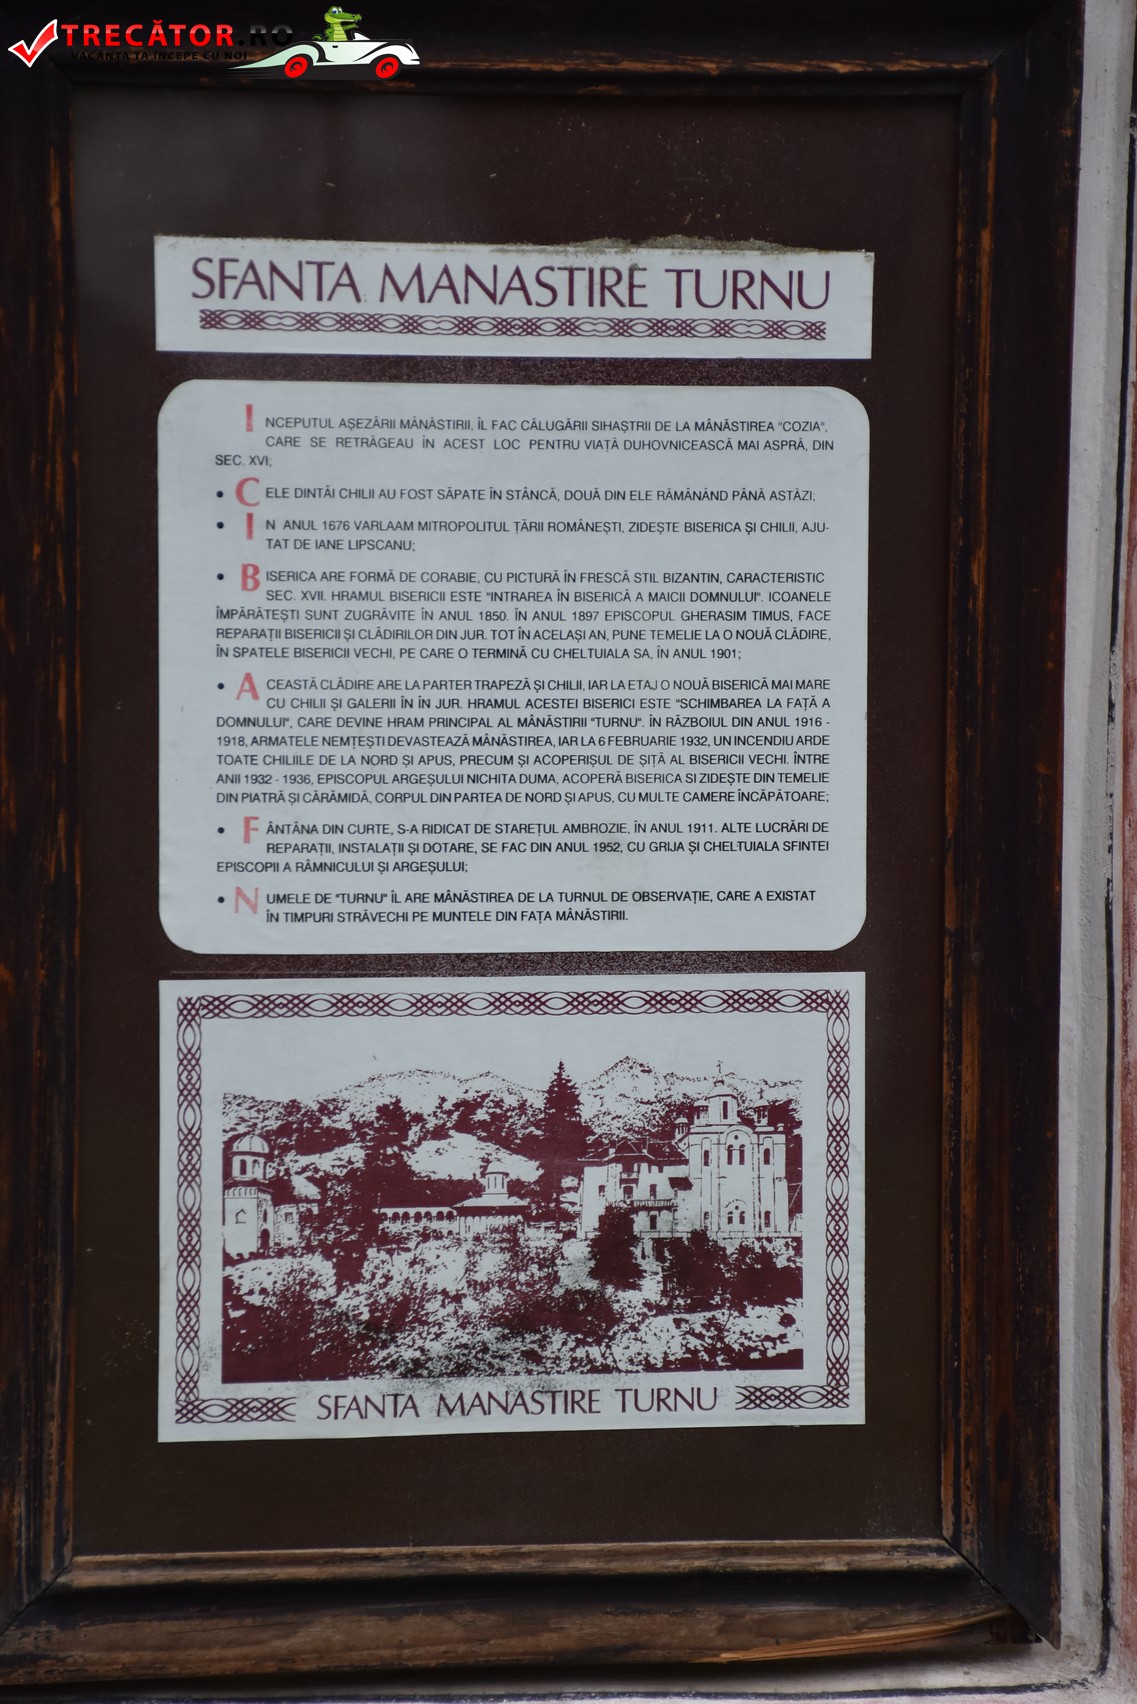 TRECĂTOR.RO
VACANȚA TA ÎNCEPE CU NOI
SFANTA MANASTIRE TURNU
INCEPUTUL AȘEZĂRII MÂNĂSTIRII, ÎL FAC CĂLUGĂRII SIHAȘTRII DE LA MÂNĂSTIREA "COZIA",
CARE SE RETRĂGEAU ÎN ACEST LOC PENTRU VIAȚĂ DUHOVNICEASCĂ MAI ASPRĂ, DIN
SEC. XVI;
• CELE DINTÂI CHILII AU FOST SĂPATE ÎN STÂNCĂ, DOUĂ DIN ELE RĂMÂNÂND PÂNĂ ASTĂZI;
• IN ANUL 1676 VARLAAM MITROPOLITUL ȚĂRII ROMÂNEȘTI, ZIDEȘTE BISERICA ȘI CHILII, AJU-
TAT DE IANE LIPSCANU;
• BISERICA ARE FORMĂ DE CORABIE, CU PICTURĂ ÎN FRESCĂ STIL BIZANTIN, CARACTERISTIC
SEC. XVII. HRAMUL BISERICII ESTE "INTRAREA ÎN BISERICĂ A MAICII DOMNULUI". ICOANELE
ÎMPĂRĂTEȘTI SUNT ZUGRĂVITE ÎN ANUL 1850. ÎN ANUL 1897 EPISCOPUL GHERASIM TIMUS, FACE
REPARAȚII BISERICII ȘI CLĂDIRILOR DIN JUR. TOT ÎN ACELAȘI AN, PUNE TEMELIE LA O NOUĂ CLĂDIRE,
ÎN SPATELE BISERICII VECHI, PE CARE O TERMINĂ CU CHELTUIALA SA, ÎN ANUL 1901;
• ACEASTĂ CLĂDIRE ARE LA PARTER TRAPEZĂ ȘI CHILII, IAR LA ETAJ O NOUĂ BISERICĂ MAI MARE
CU CHILII ȘI GALERII ÎN ÎN JUR. HRAMUL ACESTEI BISERICI ESTE "SCHIMBAREA LA FAȚĂ A
DOMNULUI", CARE DEVINE HRAM PRINCIPAL AL MÂNĂSTIRII "TURNU". ÎN RĂZBOIUL DIN ANUL 1916 -
1918, ARMATELE NEMȚEȘTI DEVASTEAZĂ MÂNĂSTIREA, IAR LA 6 FEBRUARIE 1932, UN INCENDIU ARDE
TOATE CHILIILE DE LA NORD ȘI APUS, PRECUM ȘI ACOPERIȘUL DE ȘIȚĂ AL BISERICII VECHI. ÎNTRE
ANII 1932 - 1936, EPISCOPUL ARGEȘULUI NICHITA DUMA, ACOPERĂ BISERICA SI ZIDEȘTE DIN TEMELIE
DIN PIATRĂ ȘI CĂRĂMIDĂ, CORPUL DIN PARTEA DE NORD ȘI APUS, CU MULTE CAMERE ÎNCĂPĂTOARE;
• FÂNTÂNA DIN CURTE, S-A RIDICAT DE STAREȚUL AMBROZIE, ÎN ANUL 1911. ALTE LUCRĂRI DE
REPARAȚII, INSTALAȚII ȘI DOTARE, SE FAC DIN ANUL 1952, CU GRIJA ȘI CHELTUIALA SFINTEI
EPISCOPII A RÂMNICULUI ȘI ARGEȘULUI;
• NUMELE DE "TURNU" ÎL ARE MÂNĂSTIREA DE LA TURNUL DE OBSERVAȚIE, CARE A EXISTAT
ÎN TIMPURI STRĂVECHI PE MUNTELE DIN FAȚA MÂNĂSTIRII.
SFANTA MANASTIRE TURNU